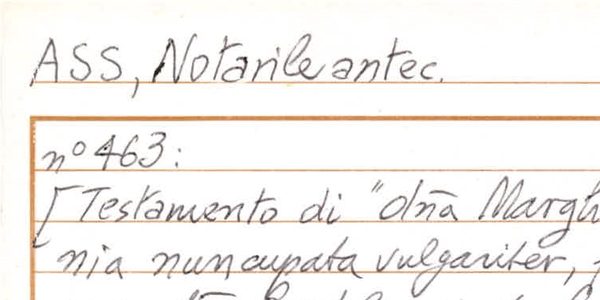 ASS, Notarile antec.
n° 463:
[Testamento di "dña
nia nuncupata vulgariter,